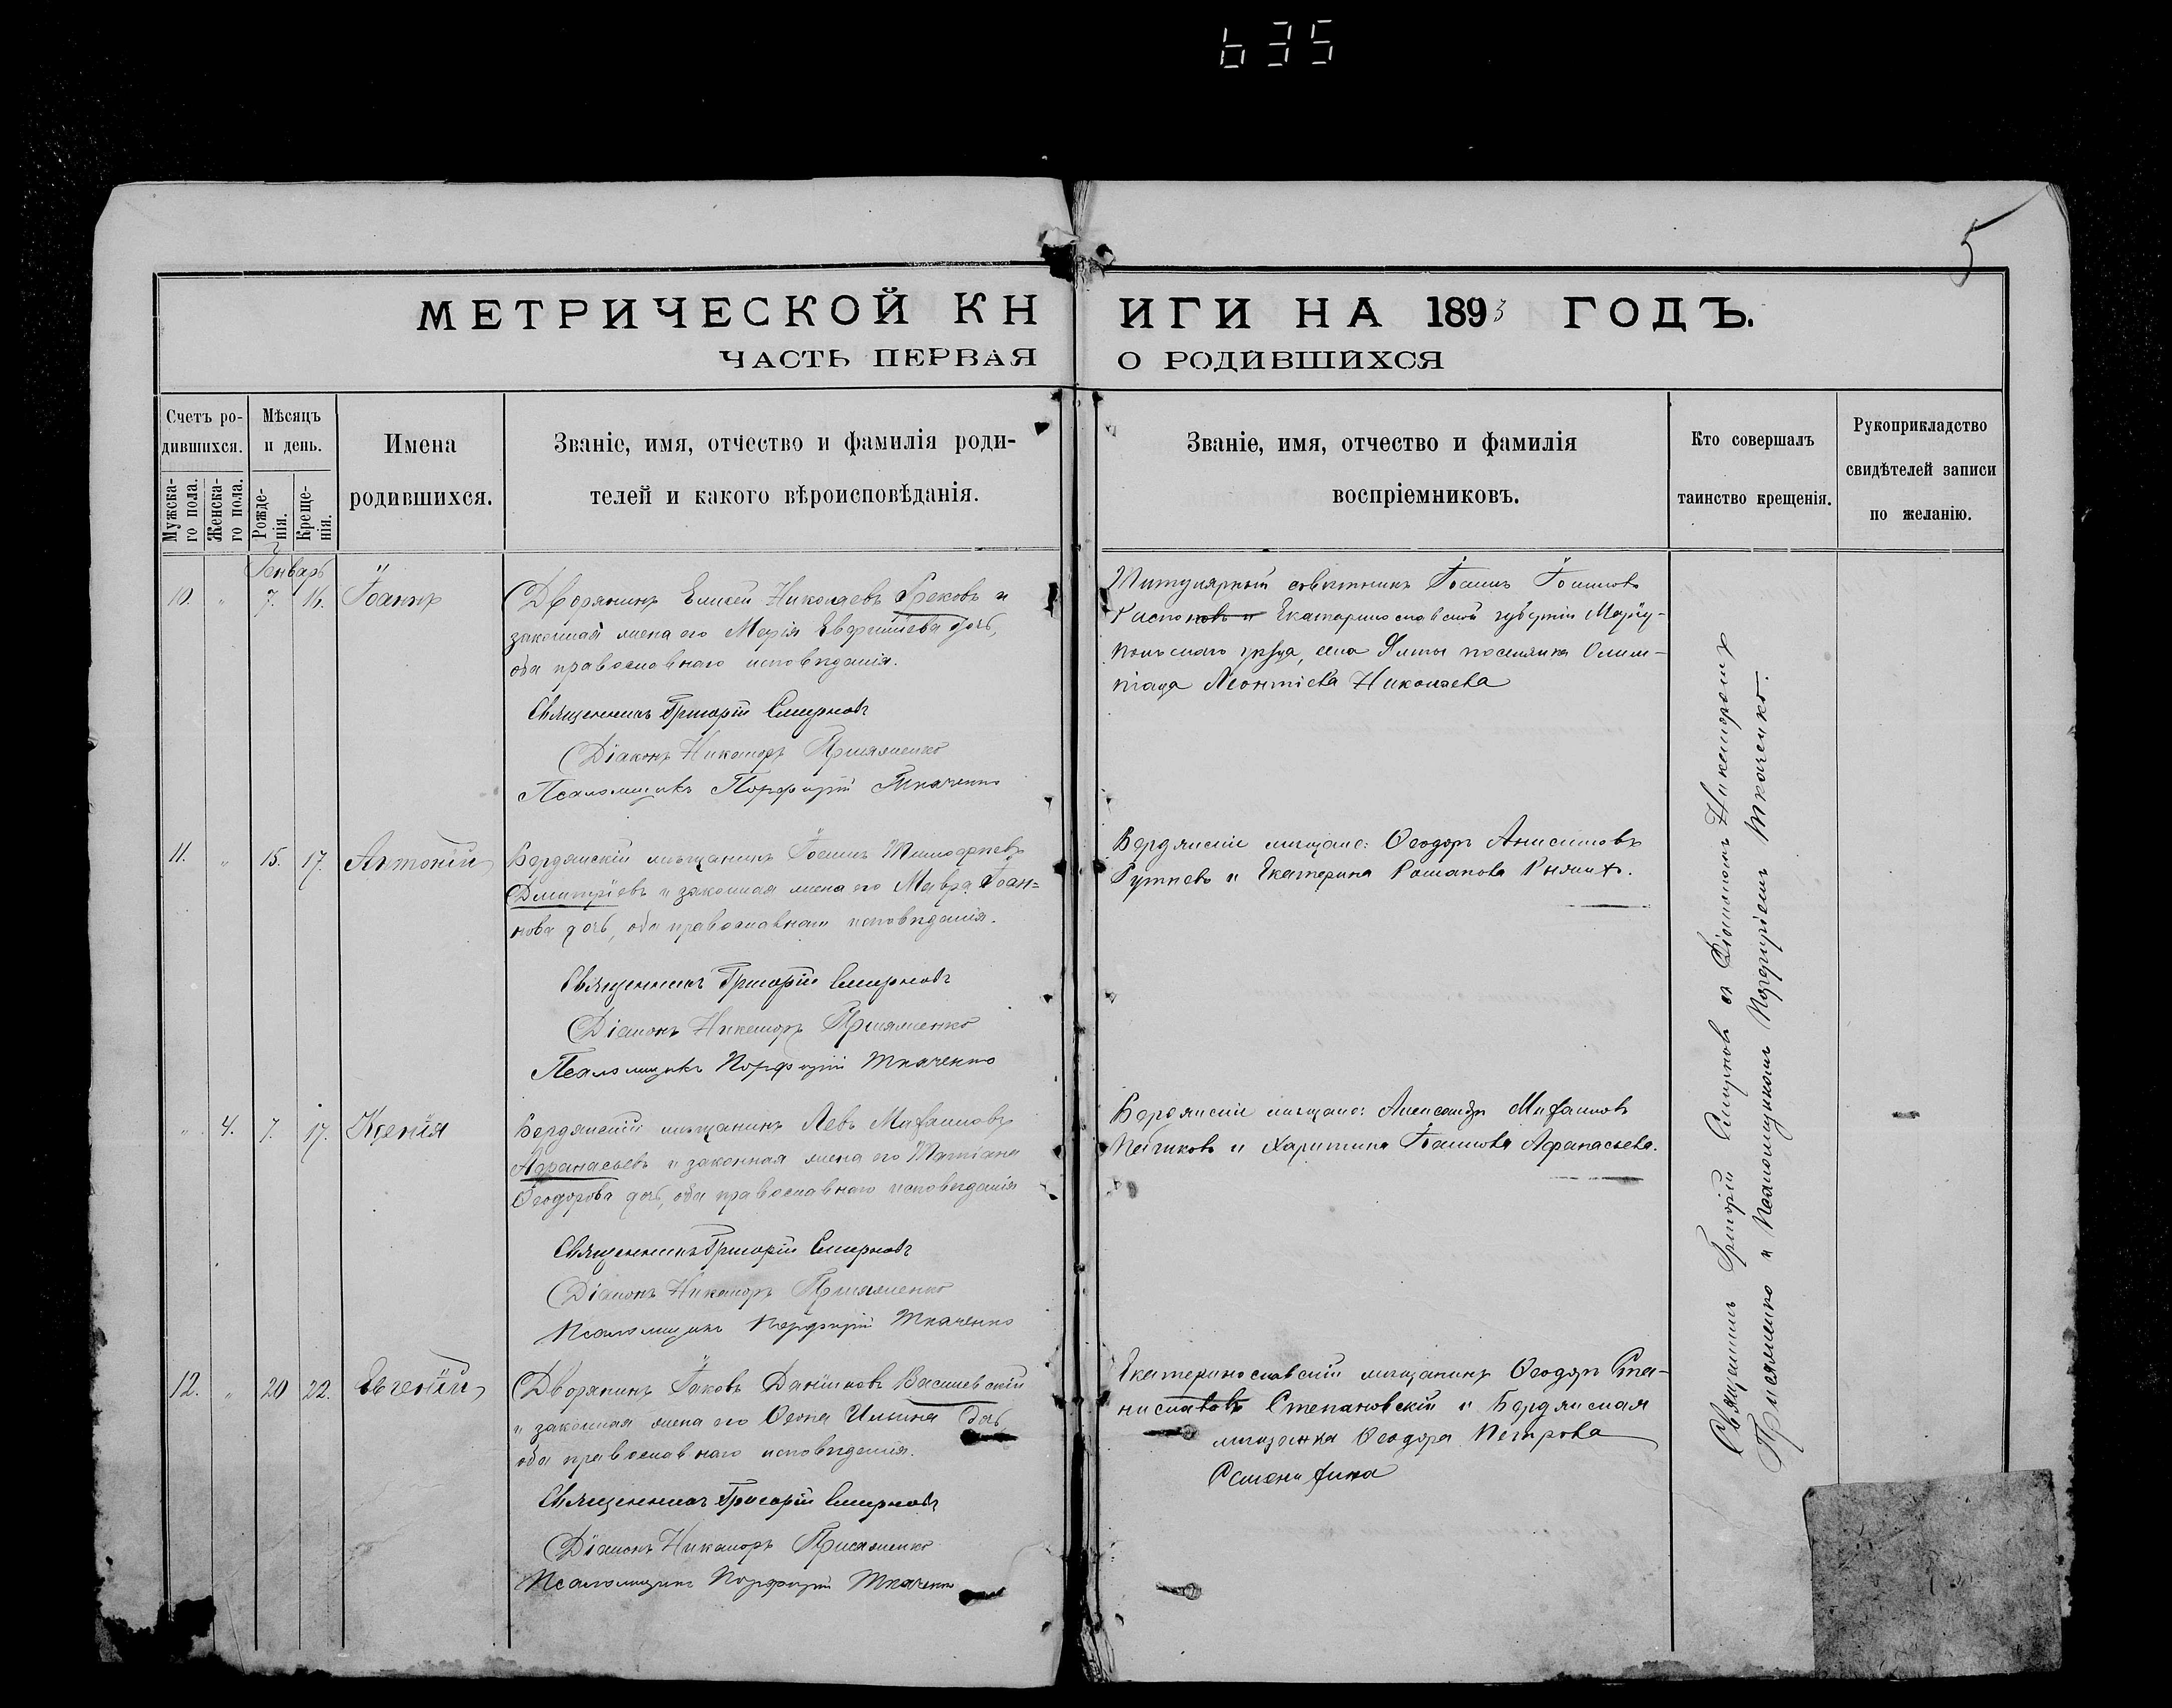 635
5
МЕТРИЧЕСКОЙ КНИГИ НА 1893 ГОДЪ.
ЧАСТЬ ПЕРВАЯ О РОДИВШИХСЯ
Счетъ ро-
дившихся.
Мужска-
го пола.
Женска-
го пола.
Мѣсяцъ
и день.
Рожде-
нія.
Креще-
нія.
Имена
родившихся.
Званіе, имя, отчество и фамилія роди-
телей и какого вѣроисповѣданія.
Званіе, имя, отчество и фамилія
воспріемниковъ.
Кто совершалъ
таинство крещенія.
Рукоприкладство
свидѣтелей записи
по желанію.
Январь
10. " 7. 16. Іоаннъ
Дворянинъ Елисей Николаевъ Грековъ и
законная жена его Марія Евфиміева дочь,
оба православнаго исповѣданія.
Священникъ Григорій Смирновъ
Діаконъ Никаноръ Присяженко
Псаломщикъ Порфирій Ткаченко
Титулярный совѣтникъ Іоаннъ Іоанновъ
Екатеринославской губерніи Маріу-
польскаго уѣзда, села Ялты поселянка Олим-
піада Леонтіева Николаева
11. " 15. 17. Антоній
Бердянскій мѣщанинъ Іоаннъ Тимофеевъ
Дмитріевъ и законная жена его Мавра Іоан-
нова дочь, оба православнаго исповѣданія.
Священникъ Григорій Смирновъ
Діаконъ Никаноръ Присяженко
Псаломщикъ Порфирій Ткаченко
Бердянскіе мѣщане: Ѳеодоръ Анисимовъ
и Екатерина Романова
" 4. 7. 17. Ксенія
Бердянскій мѣщанинъ Левъ Михаиловъ
Афанасьевъ и законная жена его Татіана
Ѳеодорова дочь, оба православнаго исповѣданія
Священникъ Григорій Смирновъ
Діаконъ Никаноръ Присяженко
Псаломщикъ Порфирій Ткаченко
Бердянскіе мѣщане: Александръ Михаиловъ
и Харитина Іоаннова Афанасьева.
12. " 20 22. Евгеній
Дворянинъ Іаковъ Даніиловъ Василевскій
и законная жена его Ильина дочь
оба православнаго исповѣданія.
Священникъ Григорій Смирновъ
Діаконъ Никаноръ Присяженко
Псаломщикъ Порфирій Ткаченко
Екатеринославскій мѣщанинъ Ѳеодоръ Ста-
ниславовъ Степановскій и Бердянская
мѣщанка Ѳеодора Петрова
Священникъ Григорій Смирновъ съ Діакономъ Никаноромъ
Присяженко и Псаломщикомъ Порфиріемъ Ткаченко.